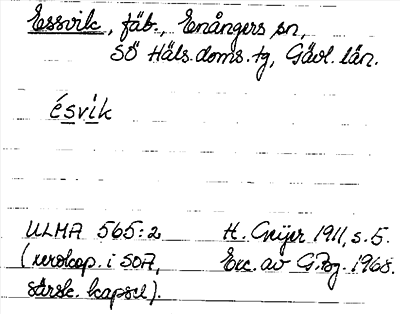 Essvik, fäb., Enångers sn,
SÖ Häls. doms. tg, Gävl. län.
ésvik
ULMA 565:2 H. Geijer 1911, s. 5.
(xerokop. i SOA, Exc. av G.Bg. 1968.
särsk. kapsel).